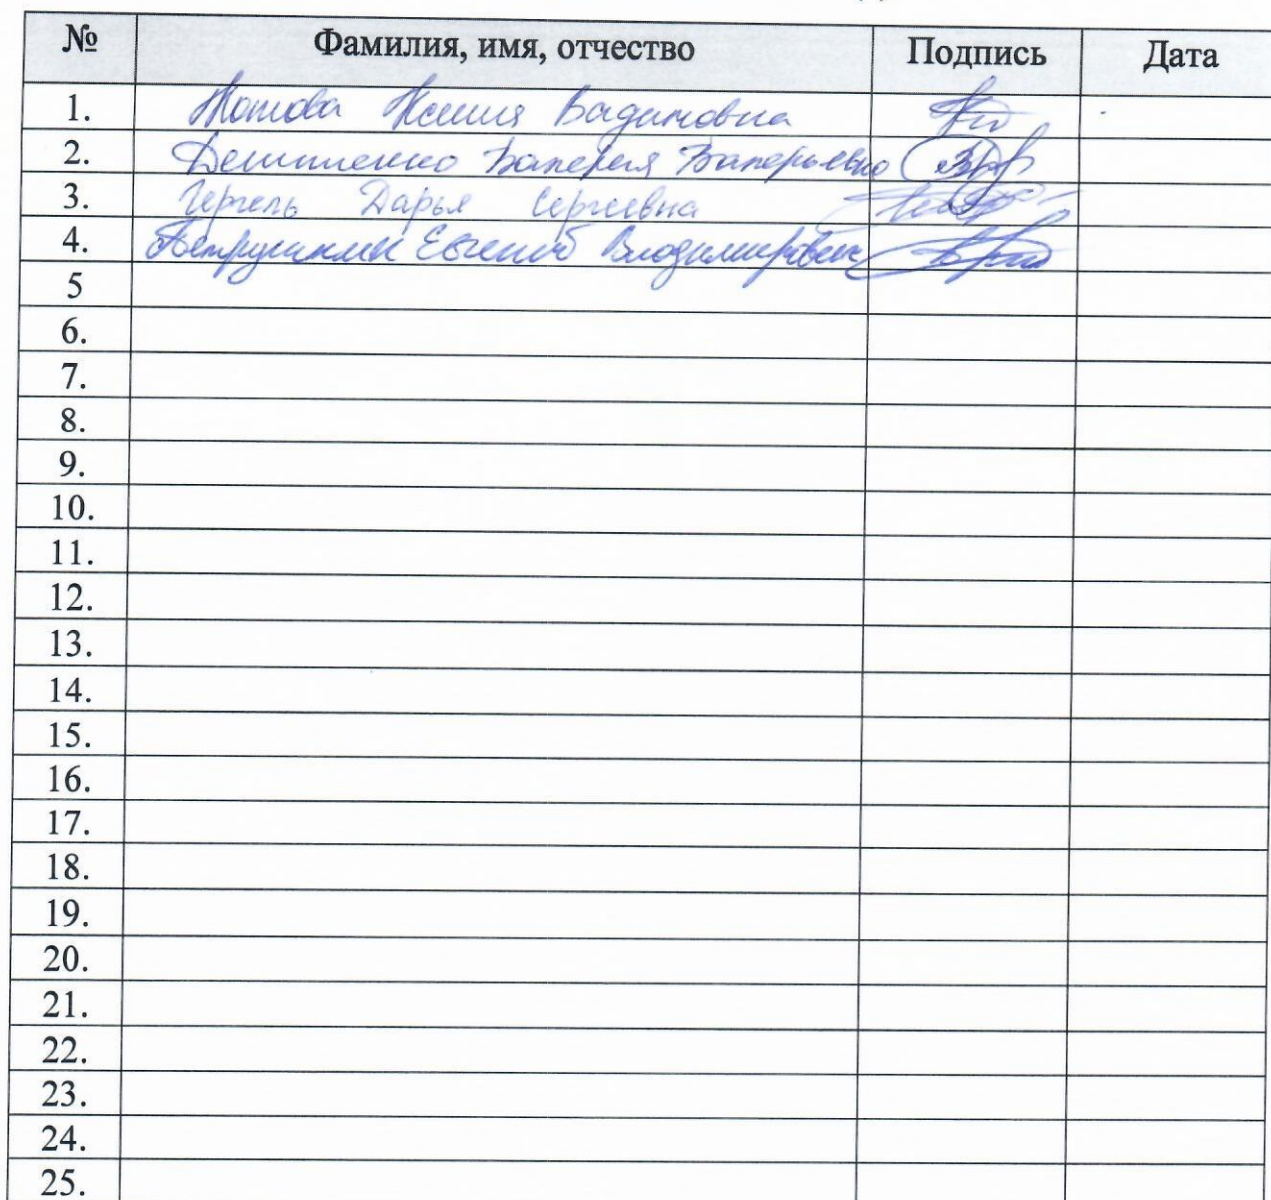 № Фамилия, имя, отчество Подпись Дата
1. Котова Ксения Вадимовна
2. Валерия Валерьевна
3. Гергель Дарья Сергеевна
4. Евгений Владимирович
5
6.
7.
8.
9.
10.
11.
12.
13.
14.
15.
16.
17.
18.
19.
20.
21.
22.
23.
24.
25.